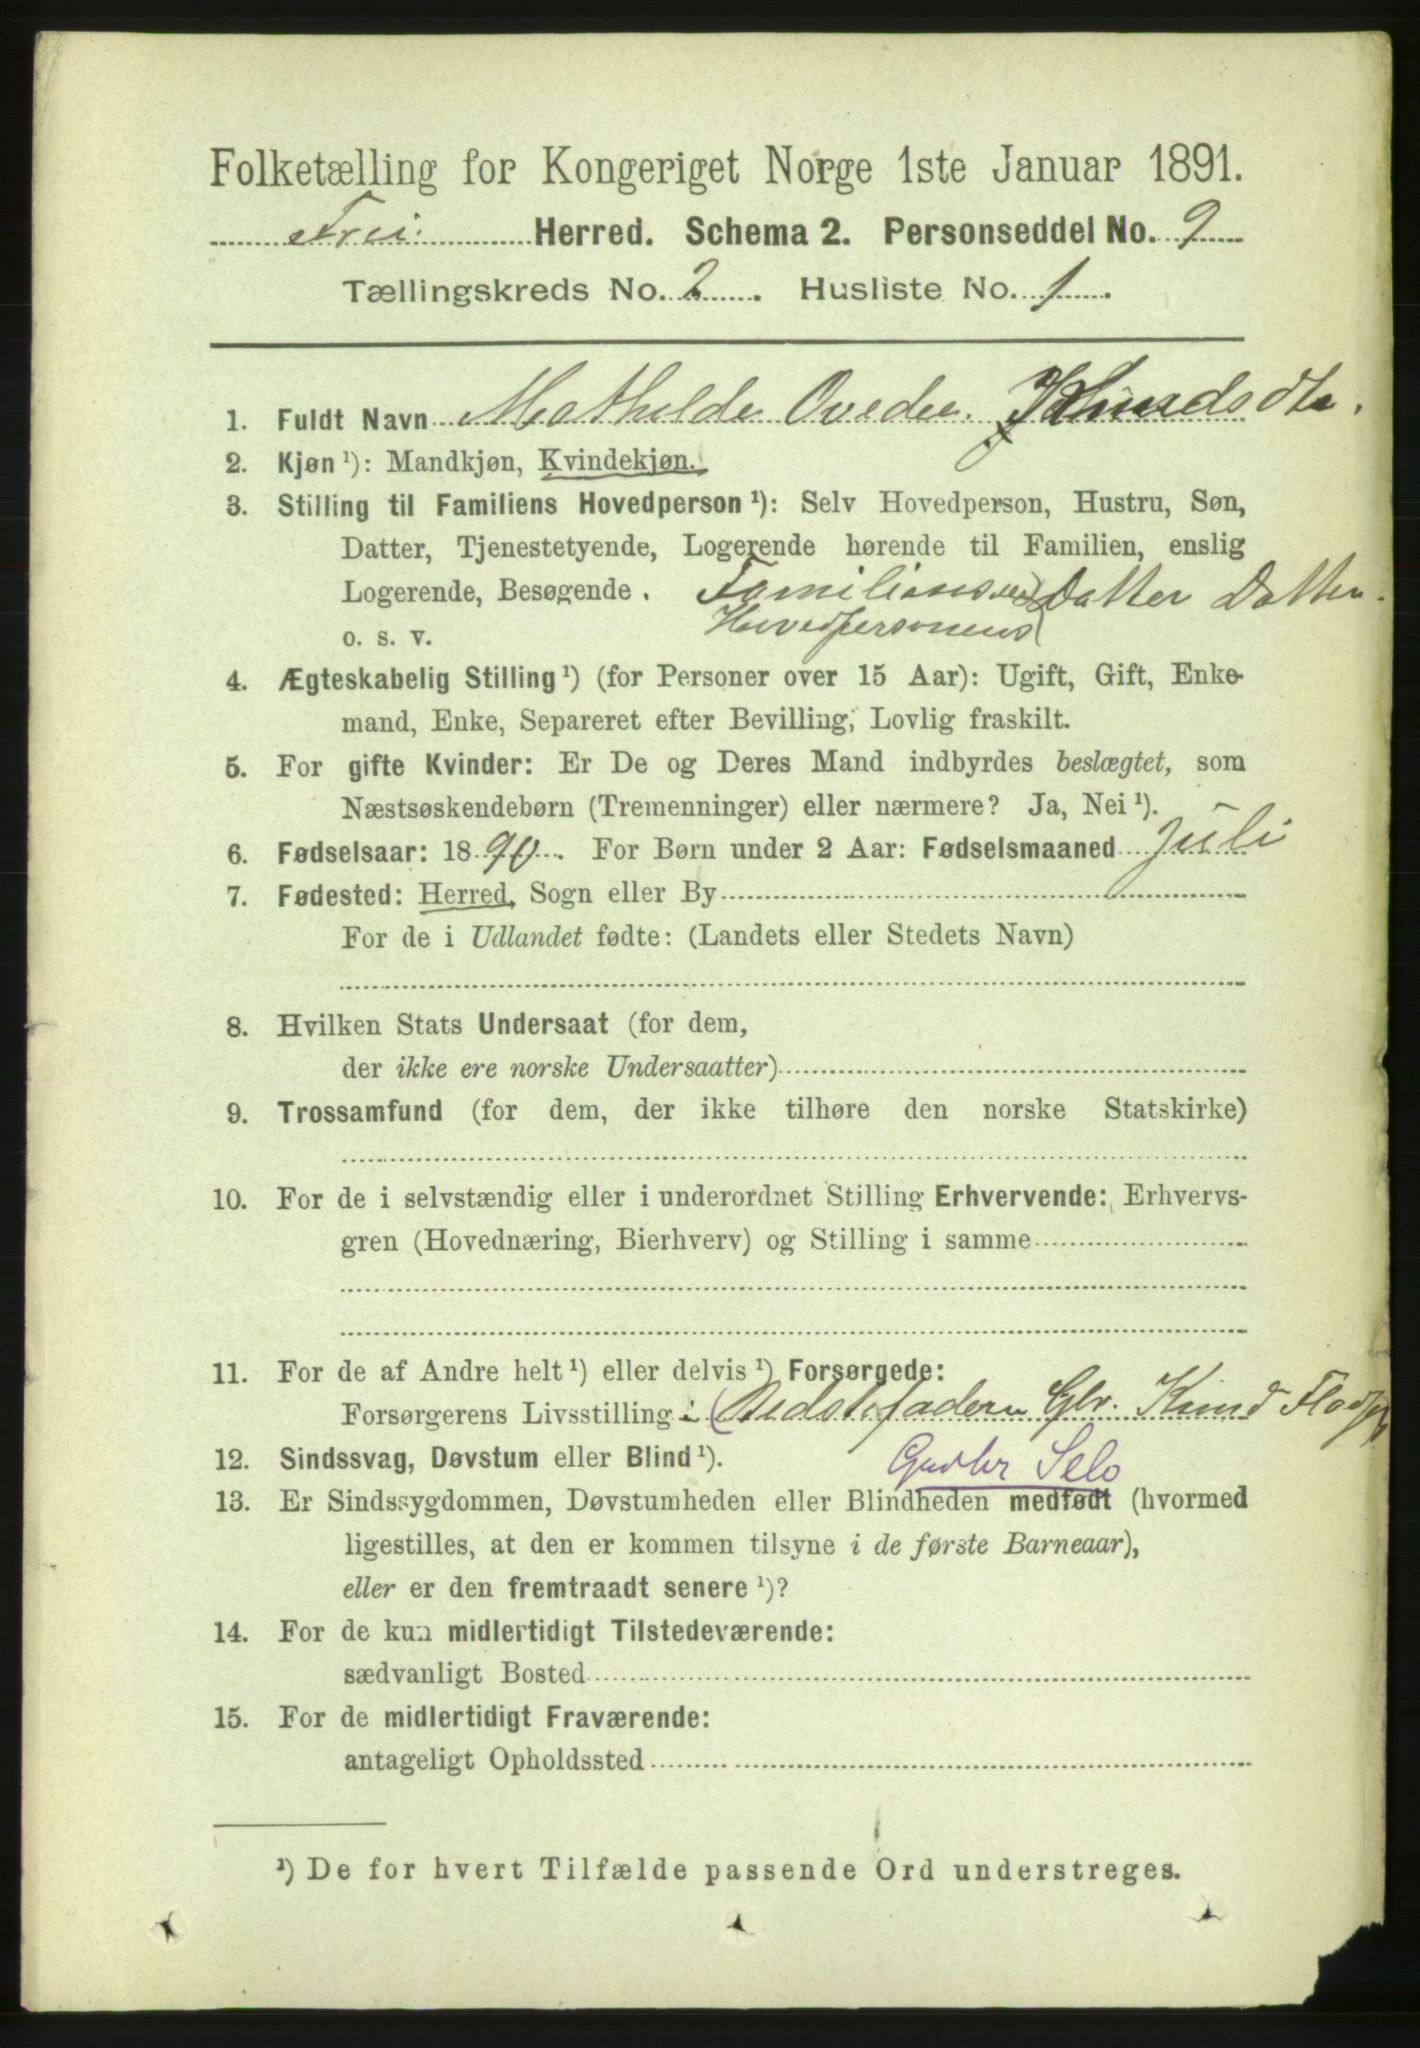 Folketælling for Kongeriget Norge 1ste Januar 1891.
Frei Herred. Schema 2. Personseddel No. 9
Tællingskreds No. 2. Husliste No. 1.
1. Fuldt Navn Mathilde Ovedee. Knudsdtr.
2. Kjøn ¹): Mandkjøn, Kvindekjøn.
3. Stilling til Familiens Hovedperson ¹): Selv Hovedperson, Hustru, Søn,
Datter, Tjenestetyende, Logerende hørende til Familien, enslig
Logerende, Besøgende. Familiens Datter Datter.
o. s. v. Hovedpersonens
4. Ægteskabelig Stilling ¹) (for Personer over 15 Aar): Ugift, Gift, Enke-
mand, Enke, Separeret efter Bevilling, Lovlig fraskilt.
5. For gifte Kvinder: Er De og Deres Mand indbyrdes beslægtet, som
Næstsøskendebørn (Tremenninger) eller nærmere? Ja, Nei ¹).
6. Fødselsaar: 1890. For Børn under 2 Aar: Fødselsmaaned Juli
7. Fødested: Herred, Sogn eller By
For de i Udlandet fødte: (Landets eller Stedets Navn)
8. Hvilken Stats Undersaat (for dem,
der ikke ere norske Undersaatter)
9. Trossamfund (for dem, der ikke tilhøre den norske Statskirke)
10. For de i selvstændig eller i underordnet Stilling Erhvervende: Erhvervs-
gren (Hovednæring, Bierhverv) og Stilling i samme
11. For de af Andre helt ¹) eller delvis ¹) Forsørgede:
Forsørgerens Livsstilling: (Bedstefaderen Gbr. Knud
12. Sindssvag, Døvstum eller Blind ¹). Gaardbr Selo
13. Er Sindssygdommen, Døvstumheden eller Blindheden medfødt (hvormed
ligestilles, at den er kommen tilsyne i de første Barneaar),
eller er den fremtraadt senere ¹)?
14. For de kun midlertidigt Tilstedeværende:
sædvanligt Bosted
15. For de midlertidigt Fraværende:
antageligt Opholdssted
¹) De for hvert Tilfælde passende Ord understreges.